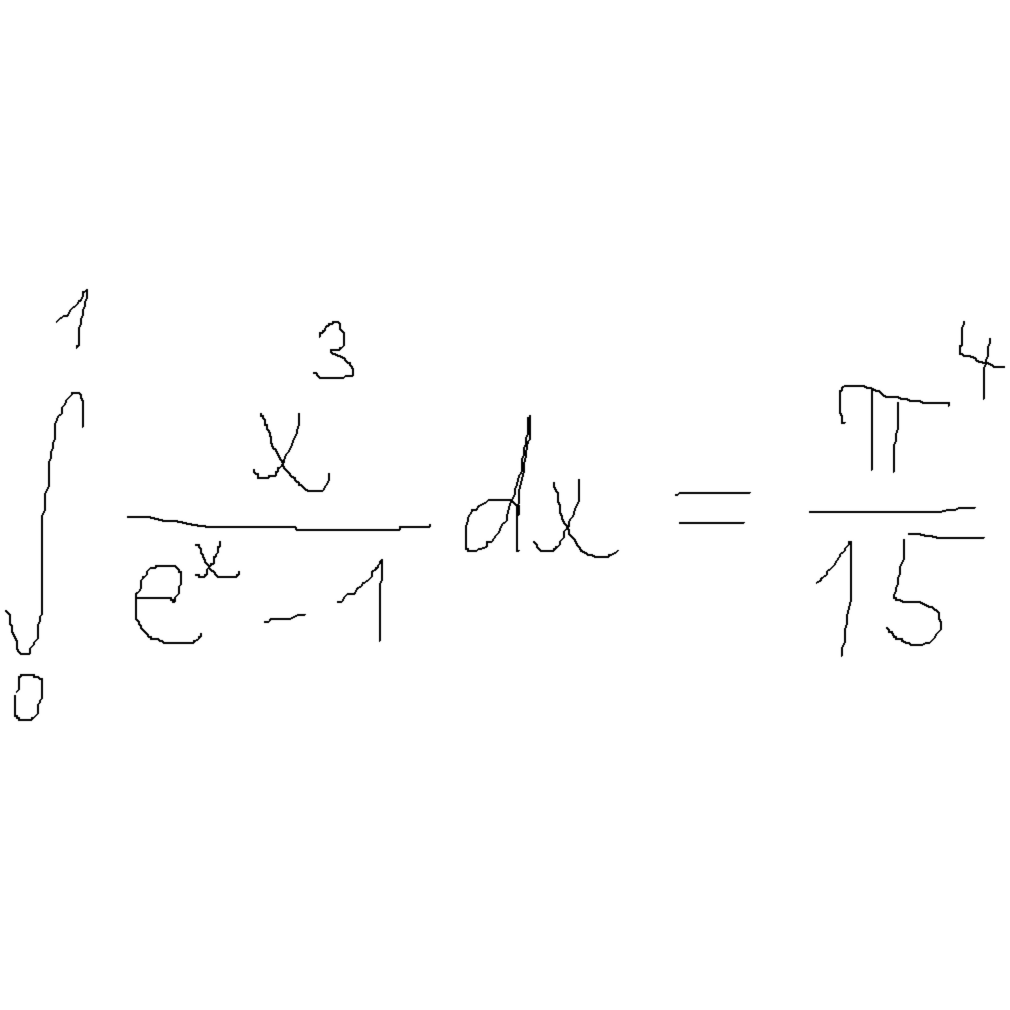 ∫₀¹ x³/(eˣ - 1) dx = π⁴/15